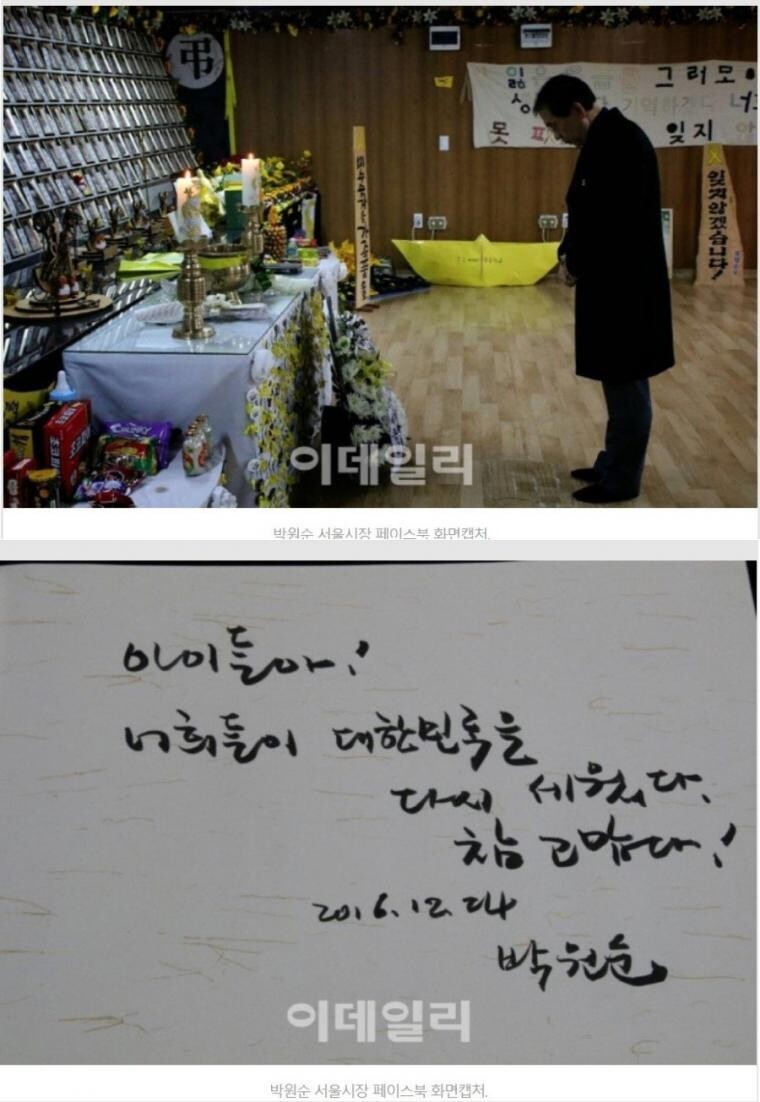 弔
그러모
기억하겠
못
잊지
잊지않겠습니다!
CHUNKY
이데일리
박원순 서울시장 페이스북 화면캡처.
아이들아!
너희들이 대한민국을
다시 세웠다.
참 고맙다!
2016.12.24
박원순
이데일리
박원순 서울시장 페이스북 화면캡처.